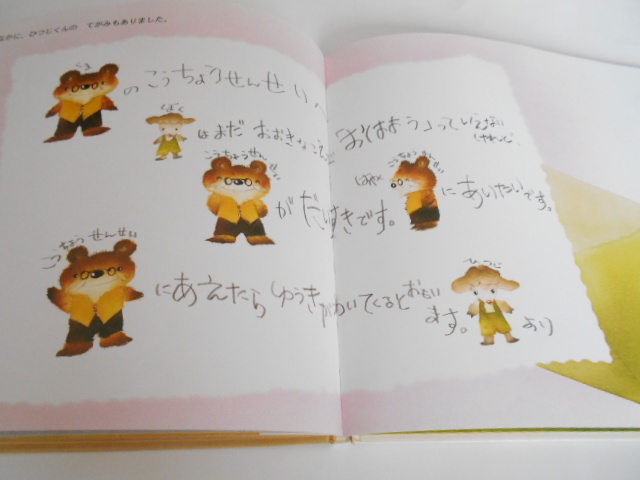 なかに、ひつじくんの てがみもありました。
くま のこうちょうせんせいへ
ぼく はまだ おおきなこえで「おはよう」っていえないけれど、
こうちょうせんせい がだいすきです。はやく こうちょうせんせい にあいたいです。
こうちょうせんせい にあえたら ゆうきがわいてくるとおもいます。ひつじ より